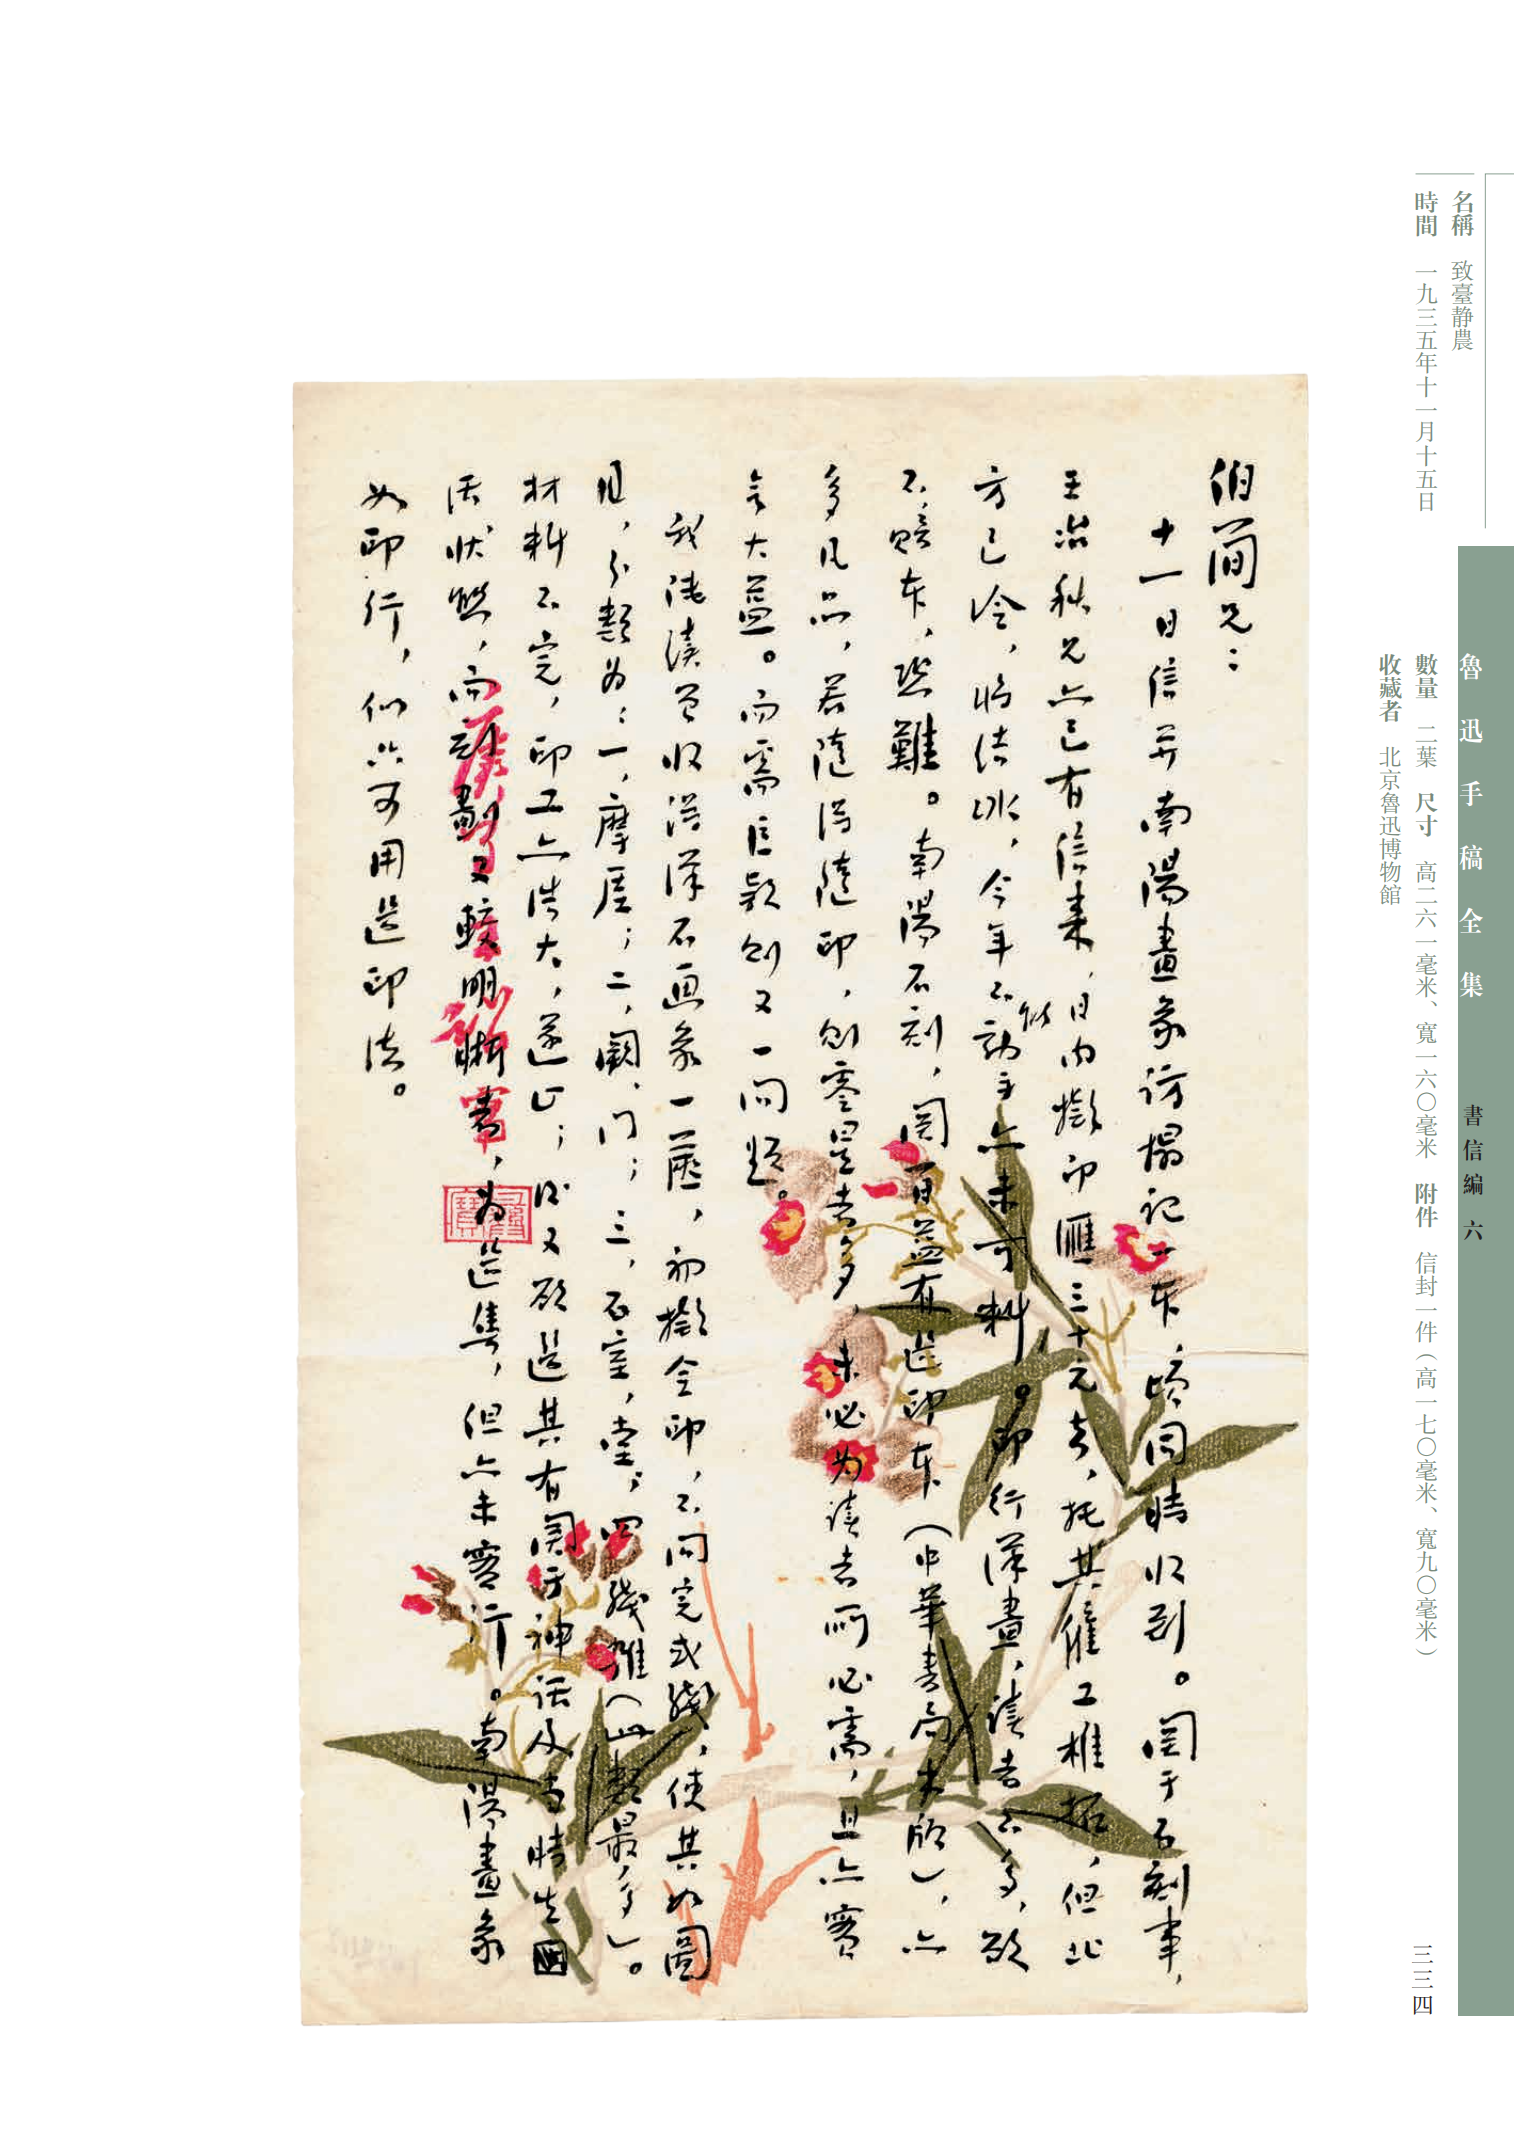 名稱　致臺静農
時間　一九三五年十一月十五日
魯迅手稿全集　書信編　六
數量　二葉　尺寸　高二六一毫米、寬一六〇毫米　附件　信封一件（高一七〇毫米、寬九〇毫米）
收藏者　北京魯迅博物館
三三四
伯簡兄：
十一日信并南陽畫象訪搨記一本，頃同時收到。関于石刻事，
王冶秋兄亦已有信來，日內擬即匯三十元去，托其雇工椎拓，但北
方已冷，將結冰，今年不似
動手亦未可料。印行漢畫，讀者不多，欲
不賠本，恐難。南陽石刻，関百益有选印本（中華書局出版），亦
多凡品，若隨得隨印，則零星者多，未必為讀者所必需，且亦實
言大益。而需巨款則又一问題。
我陸續曾收得漢石画象一箧，初擬全印，不问完或殘，使其如圖
目，分類為：一，摩厓；二，闕，门；三，石室，堂；四，殘雜（此類最多）。
材料不完，印工亦浩大，遂止；後又欲选其有関于神话及当時生
活状態，而刻劃又較明晰者，為选集，但亦未實行。南陽畫象
如印行，似亦可用选印法。